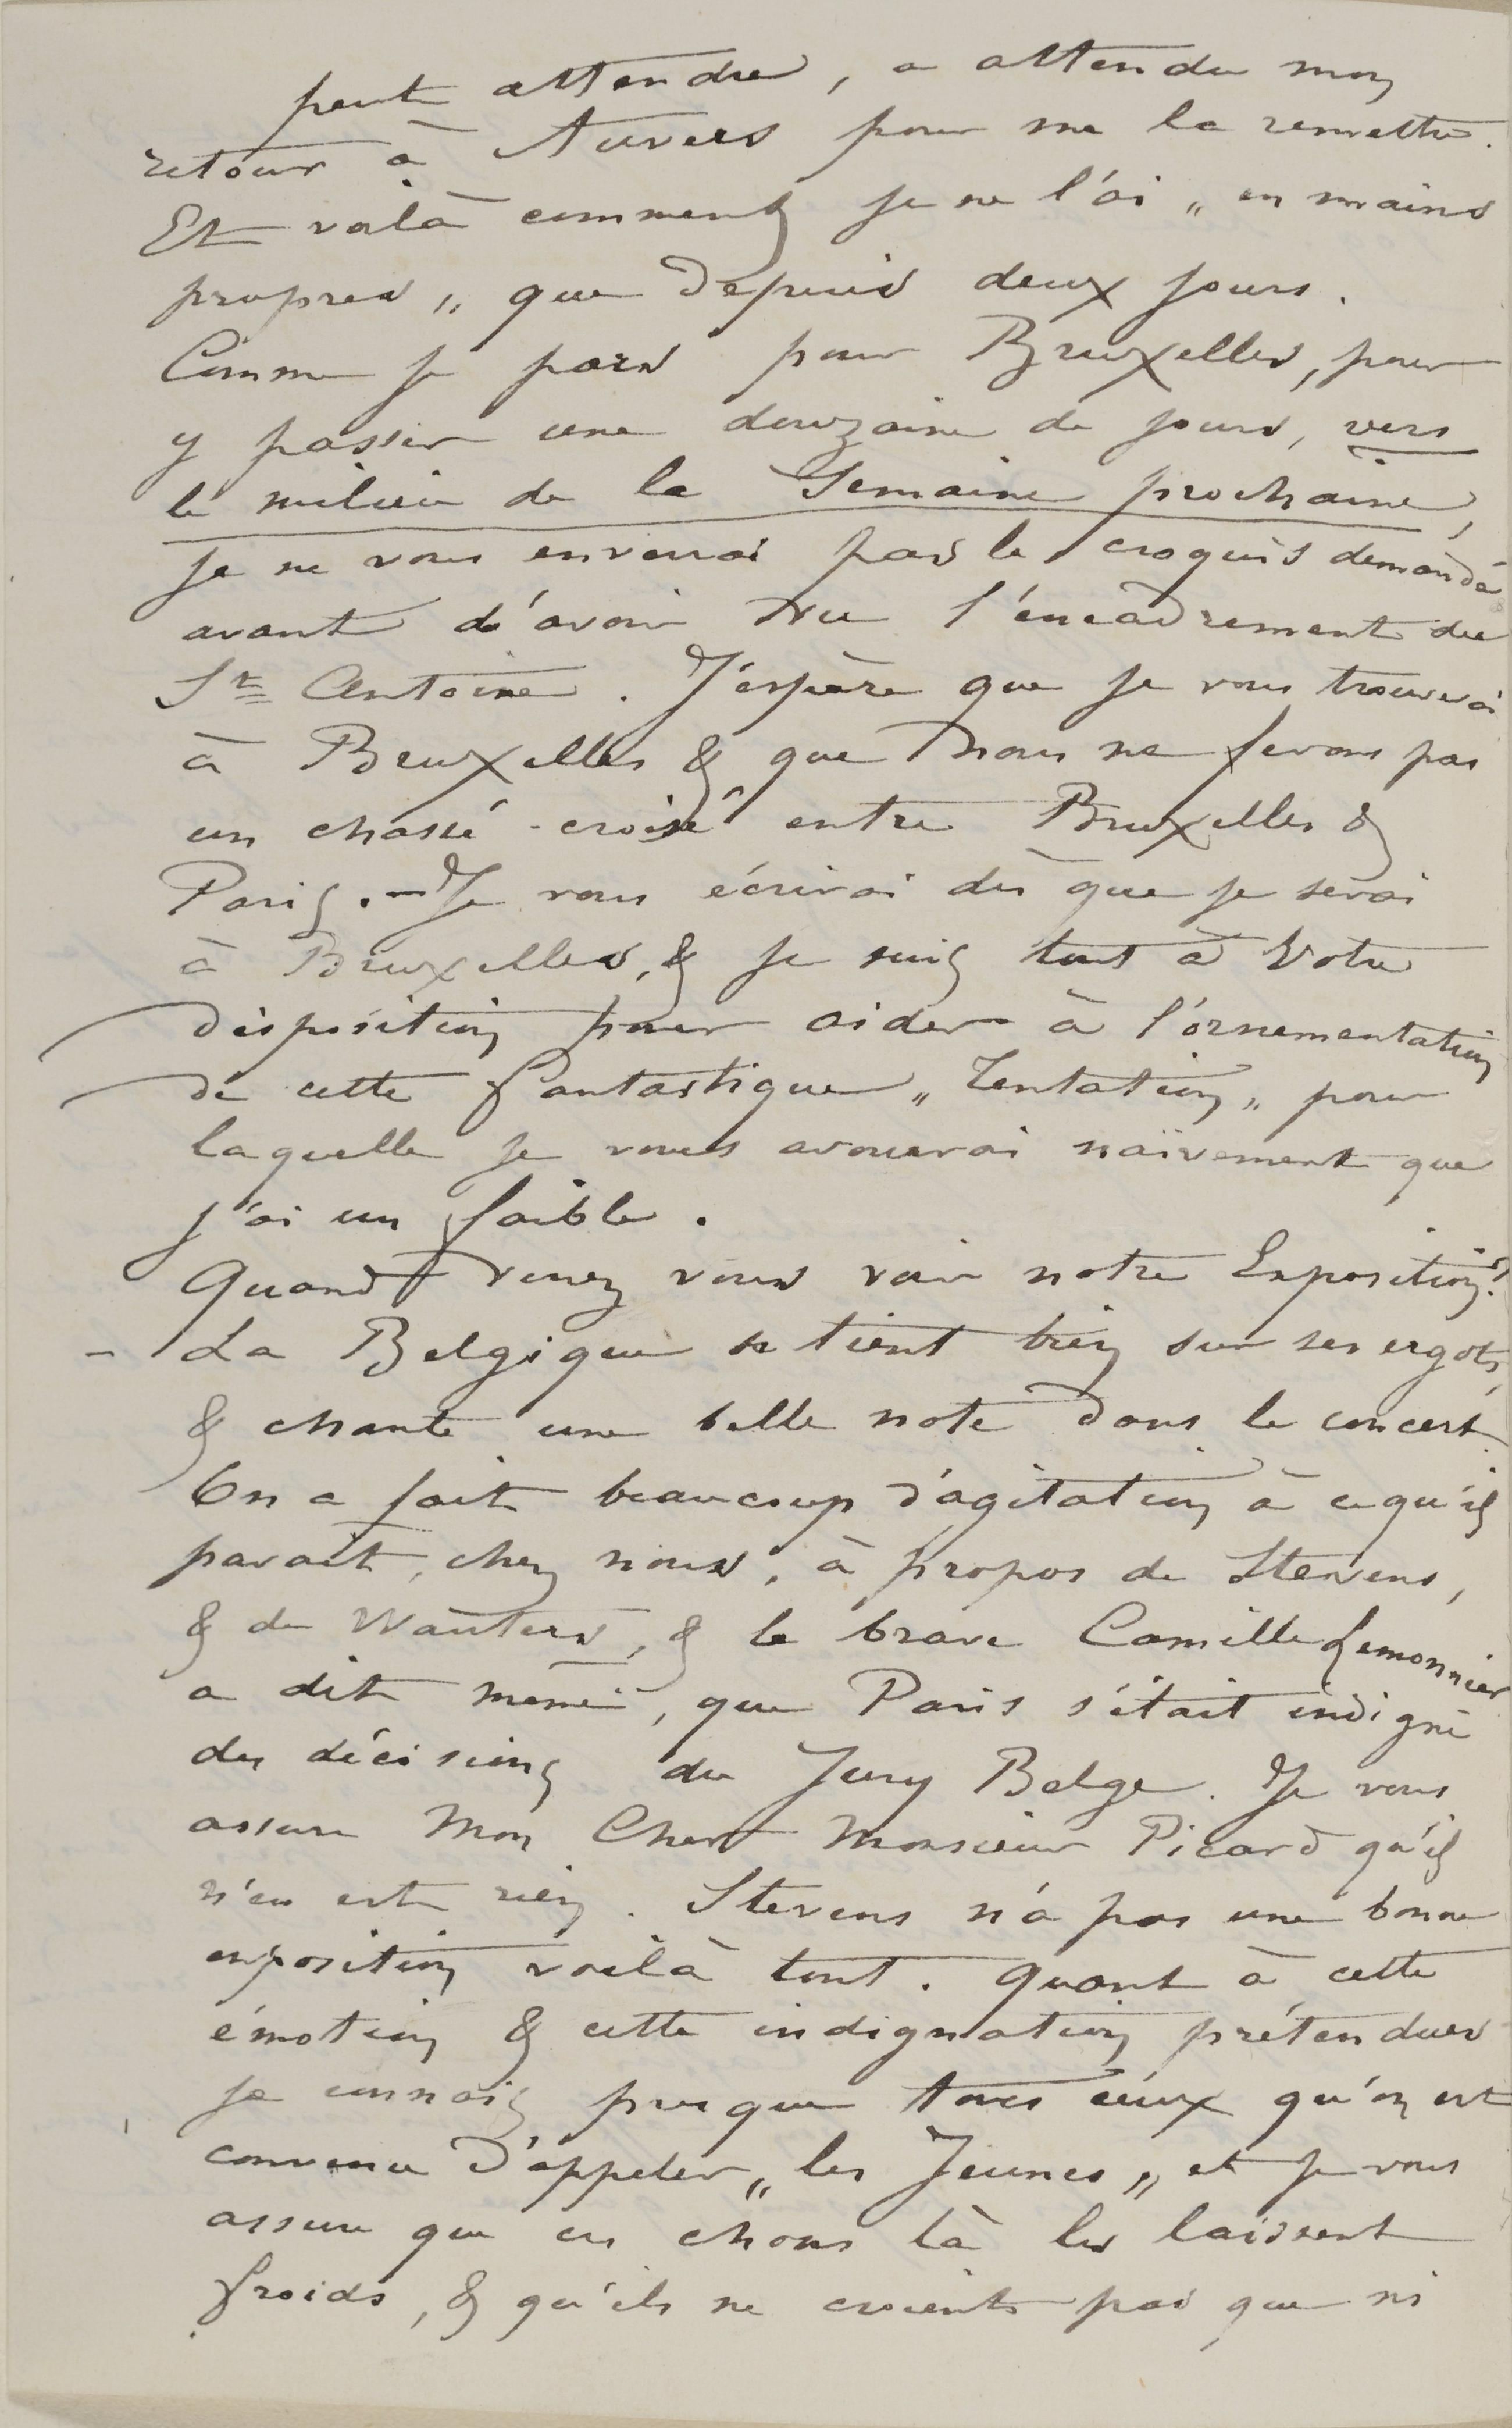 peut attendre, a attendu mon
retour à Anvers pour me la remettre.
Et voilà comment je ne l'ai „ en mains
propres „ que depuis deux jours.
Comme je pars pour Bruxelles, pour
y passer une douzaine de jours, vers
le milieu de la Semaine prochaine,
je ne vous enverrai pas le croquis demandé
avant d'avoir vu l'encadrement du
St Antoine. J'espère que je vous trouverai
à Bruxelles & que nous ne ferons pas
un chassé-croisé entre Bruxelles &
Paris. – Je vous écrirai dès que je serai
à Bruxelles, & je suis tout à votre
disposition pour aider à l'ornementation
de cette fantastique „ Tentation „ pour
laquelle je vous avouerai naïvement que
j'ai un faible.
Quand venez vous voir notre Exposition?
– La Belgique se tient bien sur ses ergots,
& chante une belle note dans le concert.
On a fait beaucoup d'agitation à ce qu'il
parait, chez nous, à propos de Stevens,
& de Wauters, & le brave Camille Lemonnier
a dit même, que Paris s'était indigné
des décisions du Jury Belge. Je vous
assure Mon Cher Monsieur Picard qu'il
n'en est rien. Stevens n'a pas une bonne
exposition voilà tout. Quant à cette
émotion & cette indignation prétendues
je connais presque tous ceux qu'on est
convenu d'appeler „ les Jeunes „ et je vous
assure que ces choses là les laissent
froids, & qu'ils ne croient pas que ni